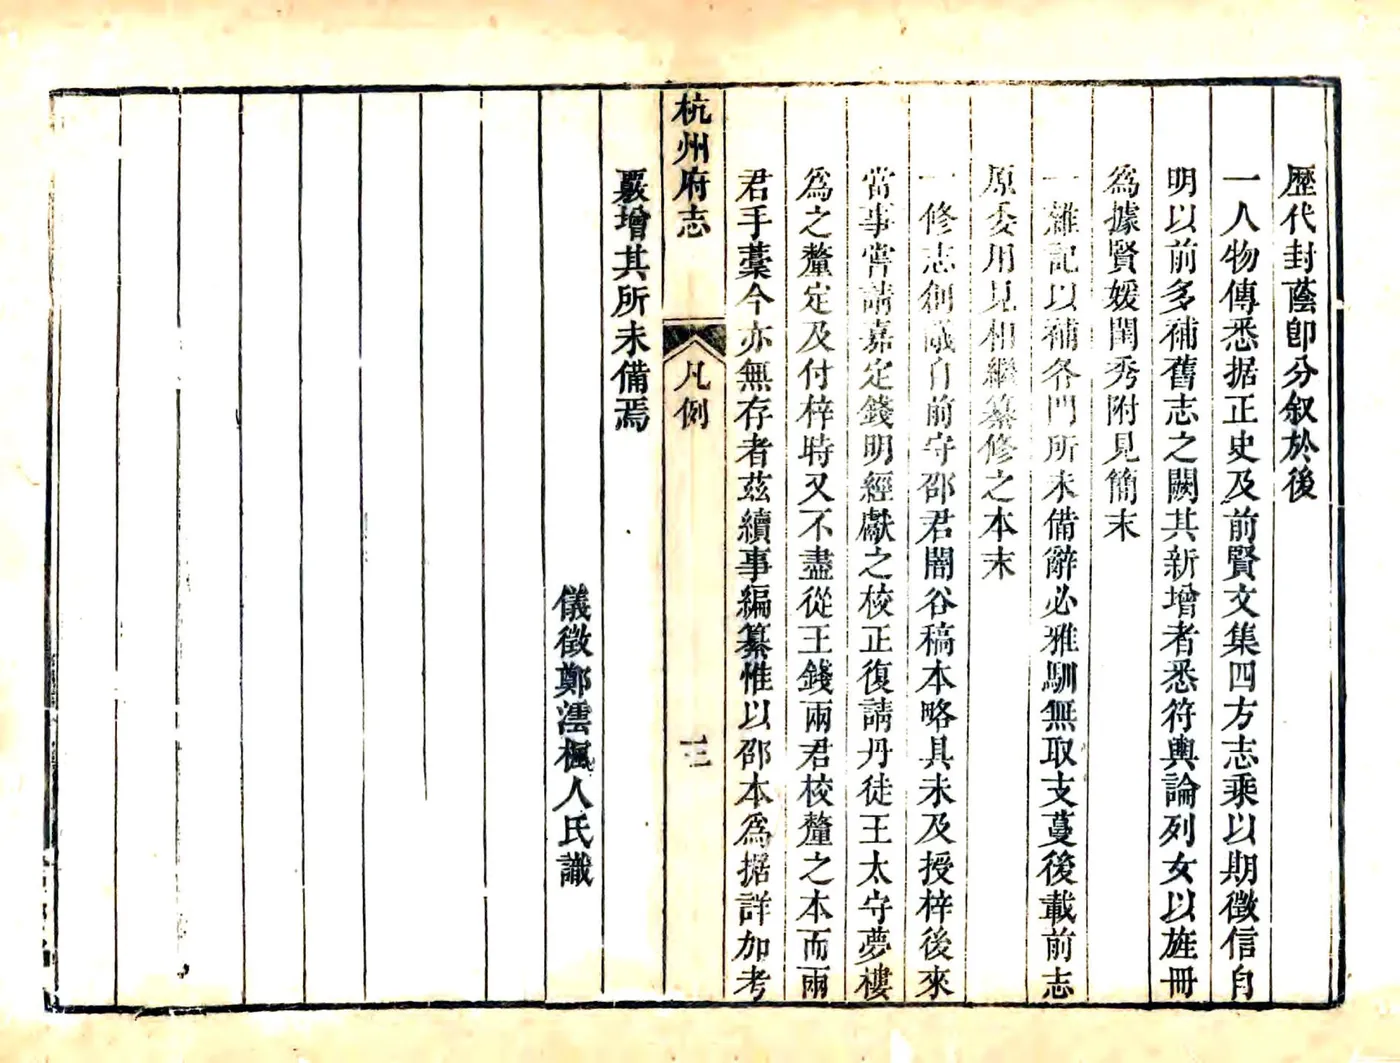 歷代封蔭卽分叙於後
一人物傳悉据正史及前賢文集四方志乘以期徵信自
明以前多補舊志之闕其新增者悉符輿論列女以旌冊
爲據賢媛閨秀附見簡末
一雜記以補各門所未備辭必雅馴無取支蔓後載前志
原委用見相繼纂修之本末
一修志創議自前守邵君闇谷稿本略具未及授梓後來
當事嘗請嘉定錢明經獻之校正復請丹徒王太守夢樓
爲之釐定及付梓時又不盡從王錢兩君校釐之本而兩
君手藁今亦無存者茲續事編纂惟以邵本爲据詳加考
杭州府志
凡例
三
覈增其所未備焉
儀徵鄭澐楓人氏識